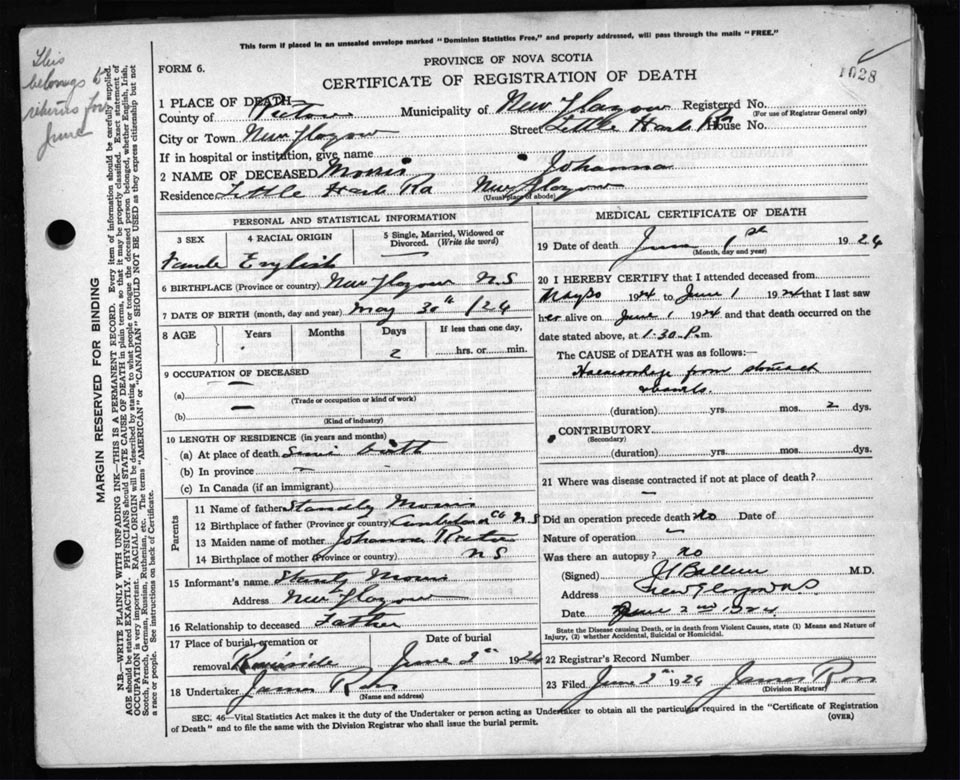 This form if placed in an unsealed envelope marked "Dominion Statistics Free," and properly addressed, will pass through the mails "FREE."
This
belongs to
returns for
June
FORM 6.
PROVINCE OF NOVA SCOTIA
CERTIFICATE OF REGISTRATION OF DEATH
1028
1 PLACE OF DEATH
County of Pictou Municipality of New Glasgow Registered No.
(For use of Registrar General only)
City or Town New Glasgow Street Little Harb Rd House No.
If in hospital or institution, give name
2 NAME OF DECEASED Morris Johanna
Residence Little Harb Rd New Glasgow
(Usual place of abode)
MARGIN RESERVED FOR BINDING
N.B.—WRITE PLAINLY WITH UNFADING INK—THIS IS A PERMANENT RECORD. Every item of information should be carefully supplied.
AGE should be stated EXACTLY. PHYSICIANS should STATE CAUSE OF DEATH in plain terms, so that it may be properly classified. Exact statement of
OCCUPATION is very important. RACIAL ORIGIN will be described by stating to what people or tongue the deceased person belonged, whether English, Irish,
Scotch, French, German, Russian, Ruthenian, etc. The terms "AMERICAN" or "CANADIAN" SHOULD NOT BE USED as they express citizenship but not
a race or people. See instructions on back of Certificate.
PERSONAL AND STATISTICAL INFORMATION
3 SEX
4 RACIAL ORIGIN
5 Single, Married, Widowed or
Divorced. (Write the word)
Female English —
6 BIRTHPLACE (Province or country) New Glasgow N.S
7 DATE OF BIRTH (month, day and year) May 30th 1924
8 AGE Years Months Days If less than one day,
2 hrs. or min.
9 OCCUPATION OF DECEASED
(a) —
(Trade or occupation or kind of work)
(b) —
(Kind of industry)
10 LENGTH OF RESIDENCE (in years and months)
(a) At place of death since birth
(b) In province —
(c) In Canada (if an immigrant)
Parents
11 Name of father Standly Morris
12 Birthplace of father (Province or country) Cumberland Co N.S
13 Maiden name of mother Johanna
14 Birthplace of mother (Province or country) N S
15 Informant's name Stanly Morris
Address New Glasgow
16 Relationship to deceased Father
17 Place of burial, cremation or Date of burial
removal Riverside June 2nd 1924
18 Undertaker James Ross
(Name and address)
MEDICAL CERTIFICATE OF DEATH
19 Date of death June 1st 1924
(Month, day and year)
20 I HEREBY CERTIFY that I attended deceased from
May 30 1924 to June 1 1924 that I last saw
her alive on June 1 1924 and that death occurred on the
date stated above, at 1.30 P.m.
The CAUSE OF DEATH was as follows:—
Haemorrhage from stomach
& bowels.
(duration) yrs. mos. 2 dys.
CONTRIBUTORY
(Secondary)
(duration) yrs. mos. dys.
21 Where was disease contracted if not at place of death?
—
Did an operation precede death No Date of
Nature of operation —
Was there an autopsy? No
(Signed) M.D.
Address New Glasgow N.S
Date June 2nd 1924
State the Disease causing Death, or in death from Violent Causes, state (1) Means and Nature of
Injury, (2) whether Accidental, Suicidal or Homicidal.
22 Registrar's Record Number
23 Filed June 2nd 1924 James Ross
(Division Registrar)
SEC. 46—Vital Statistics Act makes it the duty of the Undertaker or person acting as Undertaker to obtain all the particulars required in the "Certificate of Registration
of Death" and to file the same with the Division Registrar who shall issue the burial permit.
(OVER)